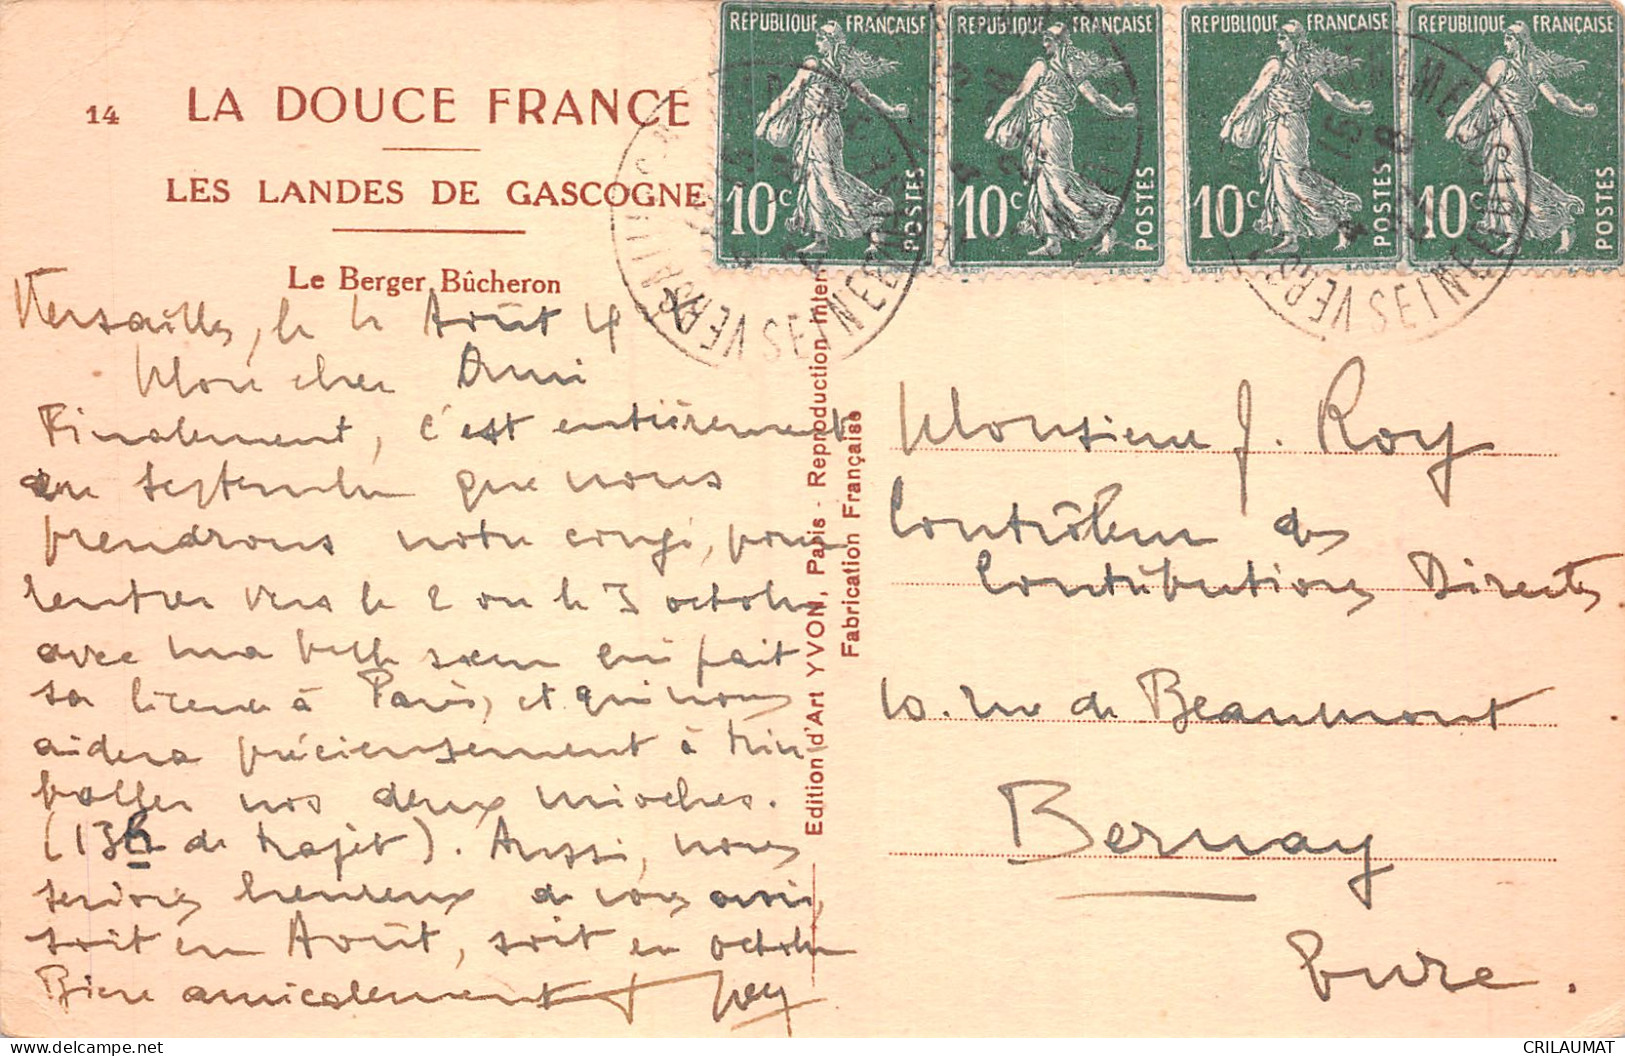 14 LA DOUCE FRANCE
LES LANDES DE GASCOGNE
Le Berger Bûcheron
RÉPUBLIQUE FRANÇAISE 10c POSTES
RÉPUBLIQUE FRANÇAISE 10c POSTES
RÉPUBLIQUE FRANÇAISE 10c POSTES
RÉPUBLIQUE FRANÇAISE 10c POSTES
VERSAILLES
SEINE
VERSAILLES
SEINE
Versailles, le 4 Août
Mon cher Ami
Finalement, c'est entièrement
en septembre que nous
prendrons notre congé, pour
rentrer vers le 2 ou le 3 octobre
avec ma belle sœur qui fait
sa licence à Paris, et qui nous
aidera précieusement à trim
baller nos deux mioches.
(13h de trajet). Aussi, nous
serions heureux de vous avoir,
soit en Août, soit en octobre
Bien amicalement
Edition d'Art YVON, Paris - Reproduction Inter
Fabrication Française
Monsieur J. Roy
Contrôleur des
Contributions Directes
10. rue de Beaumont
Bernay
Eure.
CRILAUMAT